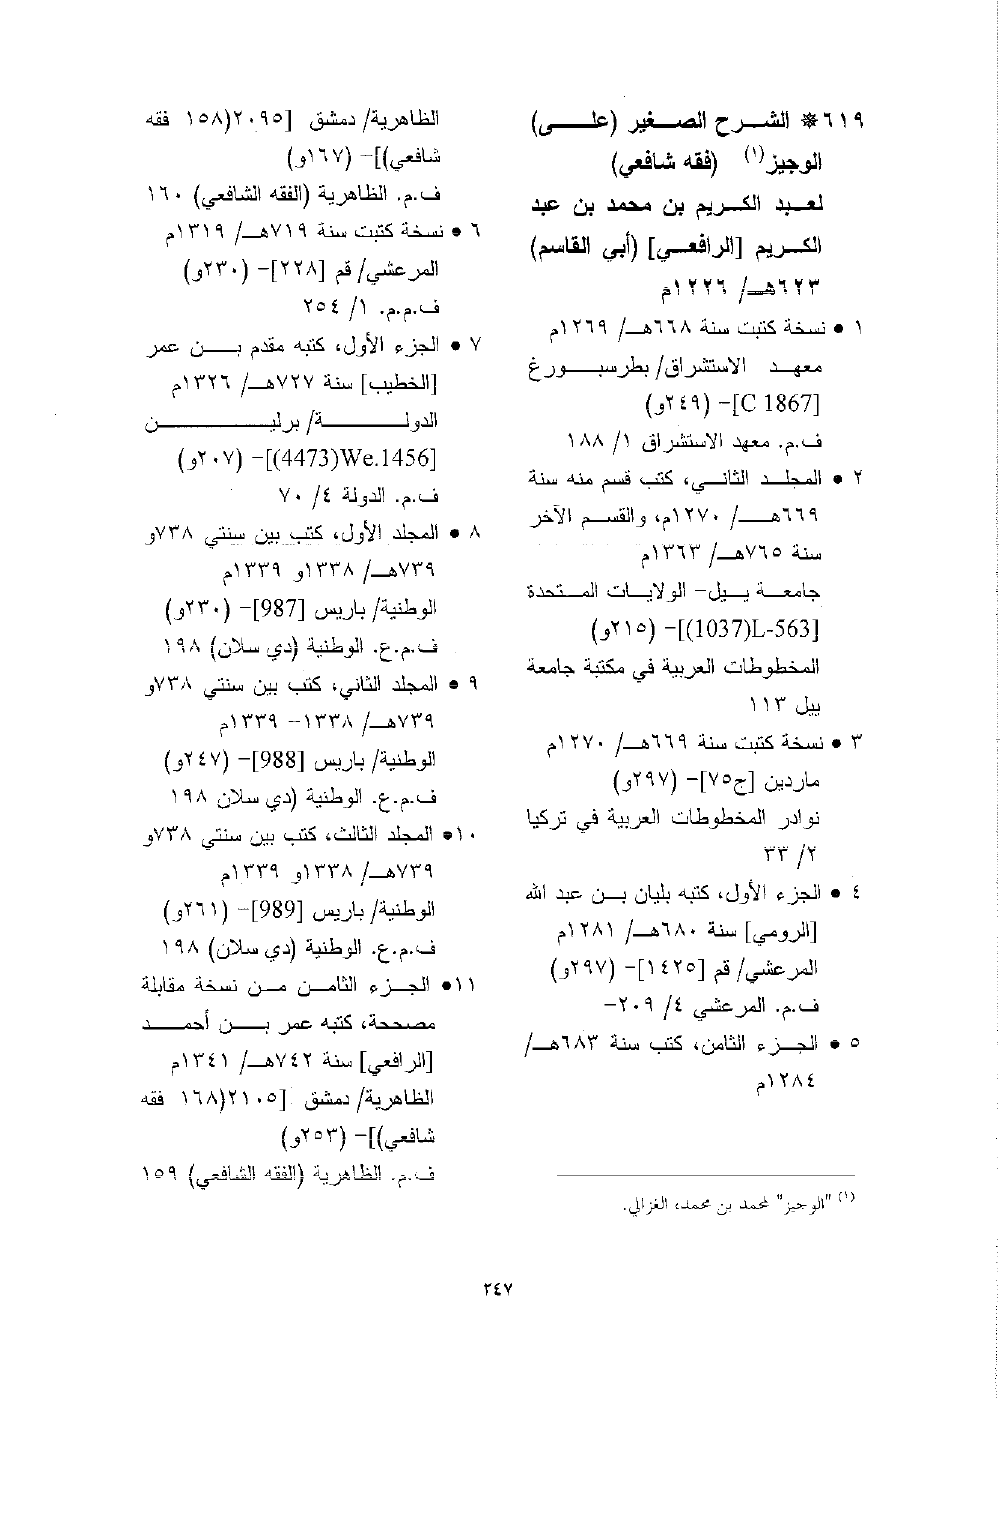 ٦١٩* الشرح الصغير (على)
الوجيز(١) (فقه شافعي)
لعبد الكريم بن محمد بن عبد
الكريم [الرافعي] (أبي القاسم)
٦٢٣هـ/ ١٢٢٦م
١ • نسخة كتبت سنة ٦٦٨هـ/ ١٢٦٩م
معهد الاستشراق/ بطرسبورغ
[C 1867]- (٢٤٩و)
ف.م. معهد الاستشراق ١/ ١٨٨
٢ • المجلد الثاني، كتب قسم منه سنة
٦٦٩هـ/ ١٢٧٠م، والقسم الآخر
سنة ٧٦٥هـ/ ١٣٦٣م
جامعة ييل- الولايات المتحدة
[L-563(1037)]- (٢١٥و)
المخطوطات العربية في مكتبة جامعة
ييل ١١٣
٣ • نسخة كتبت سنة ٦٦٩هـ/ ١٢٧٠م
ماردين [ج٧٥]- (٢٩٧و)
نوادر المخطوطات العربية في تركيا
٢/ ٣٣
٤ • الجزء الأول، كتبه بلبان بن عبد الله
[الرومي] سنة ٦٨٠هـ/ ١٢٨١م
المرعشي/ قم [١٤٢٥]- (٢٩٧و)
ف.م. المرعشي ٤/ ٢٠٩-
٥ • الجزء الثامن، كتب سنة ٦٨٣هـ/
١٢٨٤م
(١) "الوجيز" لمحمد بن محمد، الغزالي.
الظاهرية/ دمشق [٢٠٩٥(١٥٨ فقه
شافعي)]- (١٦٧و)
ف.م. الظاهرية (الفقه الشافعي) ١٦٠
٦ • نسخة كتبت سنة ٧١٩هـ/ ١٣١٩م
المرعشي/ قم [٢٢٨]- (٢٣٠و)
ف.م.م. ١/ ٢٥٤
٧ • الجزء الأول، كتبه مقدم بن عمر
[الخطيب] سنة ٧٢٧هـ/ ١٣٢٦م
الدولة/ برلين
[We.1456(4473)]- (٢٠٧و)
ف.م. الدولة ٤/ ٧٠
٨ • المجلد الأول، كتب بين سنتي ٧٣٨و
٧٣٩هـ/ ١٣٣٨و ١٣٣٩م
الوطنية/ باريس [987]- (٢٣٠و)
ف.م.ع. الوطنية (دي سلان) ١٩٨
٩ • المجلد الثاني، كتب بين سنتي ٧٣٨و
٧٣٩هـ/ ١٣٣٨- ١٣٣٩م
الوطنية/ باريس [988]- (٢٤٧و)
ف.م.ع. الوطنية (دي سلان ١٩٨
١٠• المجلد الثالث، كتب بين سنتي ٧٣٨و
٧٣٩هـ/ ١٣٣٨و ١٣٣٩م
الوطنية/ باريس [989]- (٢٦١و)
ف.م.ع. الوطنية (دي سلان) ١٩٨
١١• الجزء الثامن من نسخة مقابلة
مصححة، كتبه عمر بن أحمد
[الرافعي] سنة ٧٤٢هـ/ ١٣٤١م
الظاهرية/ دمشق [٢١٠٥(١٦٨ فقه
شافعي)]- (٢٥٣و)
ف.م. الظاهرية (الفقه الشافعي) ١٥٩
٢٤٧